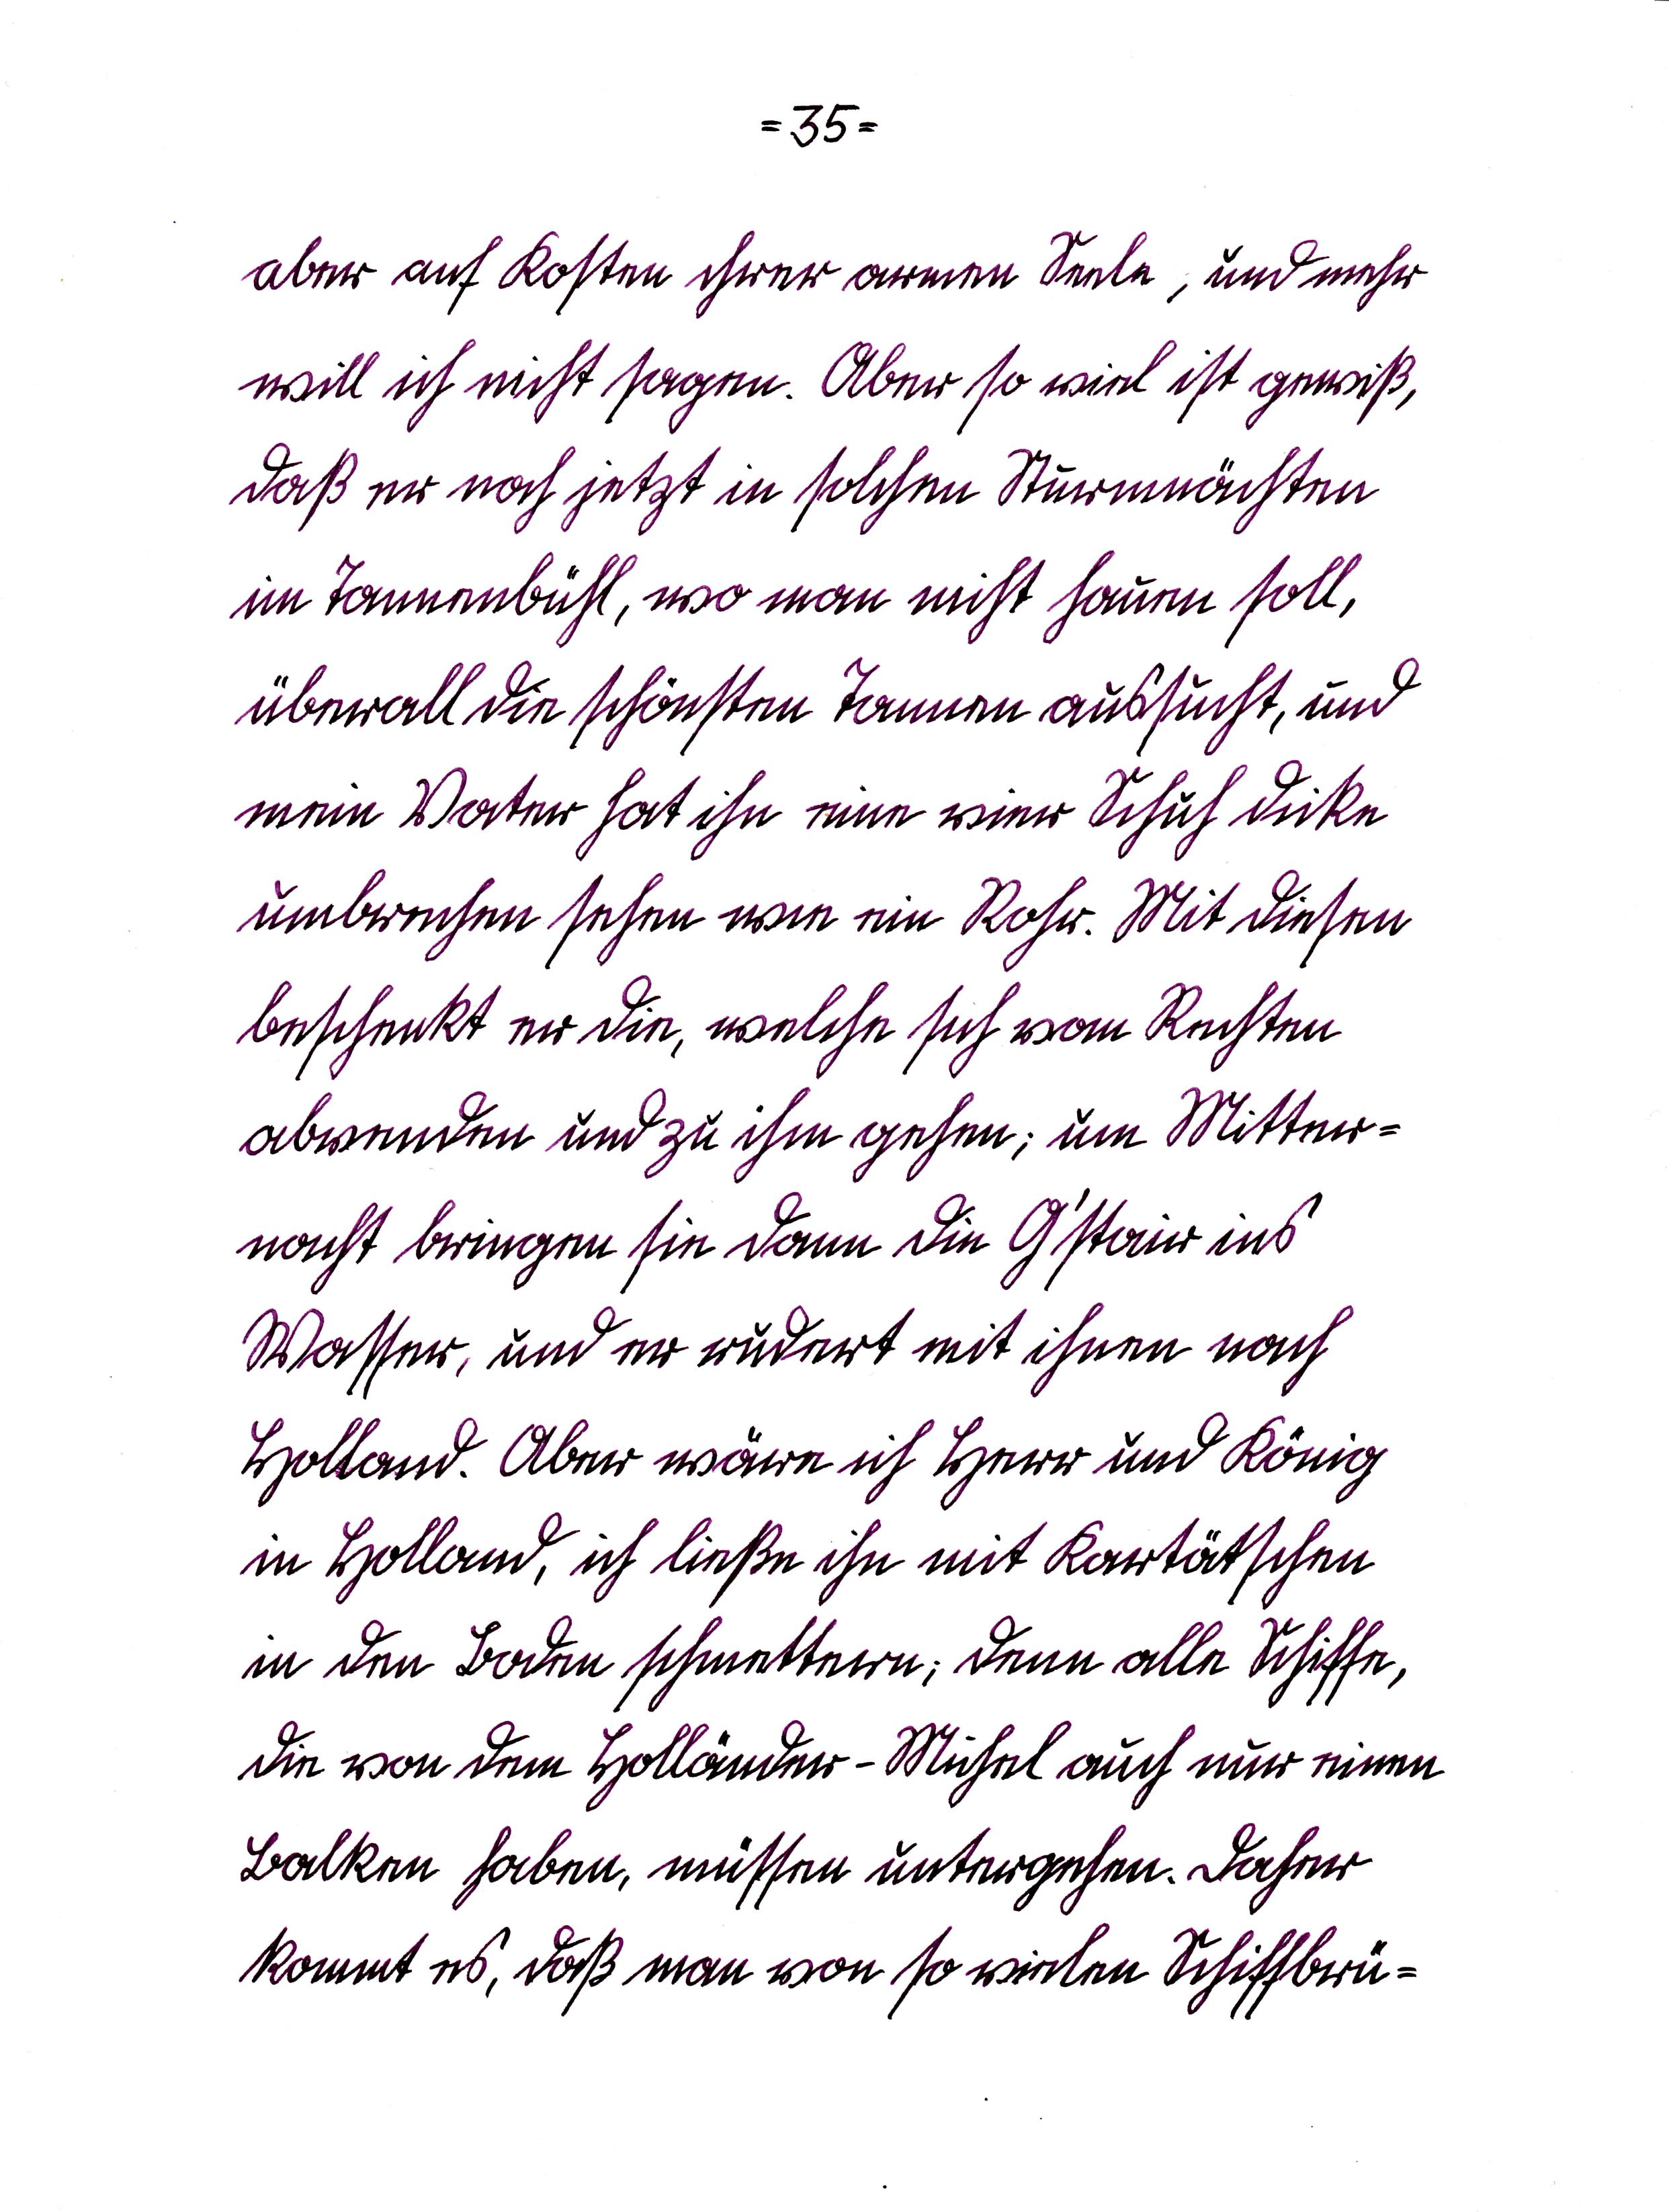 =35=
aber auf Kosten ihrer armen Seele, und mehr
will ich nicht sagen. Aber so viel ist gewiß,
daß er noch jetzt in solchen Sturmnächten
im Tannenbühl, wo man nicht hauen soll,
überall die schönsten Tannen aussucht, und
mein Vater hat ihn eine vier Schuh dicke
umbrechen sehen wie ein Rohr. Mit diesen
beschenkt er die, welche sich vom Rechten
abwenden und zu ihm gehen; um Mitter=
nacht bringen sie dann die G'stair ins
Wasser, und er rudert mit ihnen nach
Holland. Aber wäre ich Herr und König
in Holland, ich ließe ihn mit Kartätschen
in den Boden schmettern; denn alle Schiffe,
die von dem Holländer-Michel auch nur einen
Balken haben, müssen untergehen. Daher
kommt es, daß man von so vielen Schiffbrü=